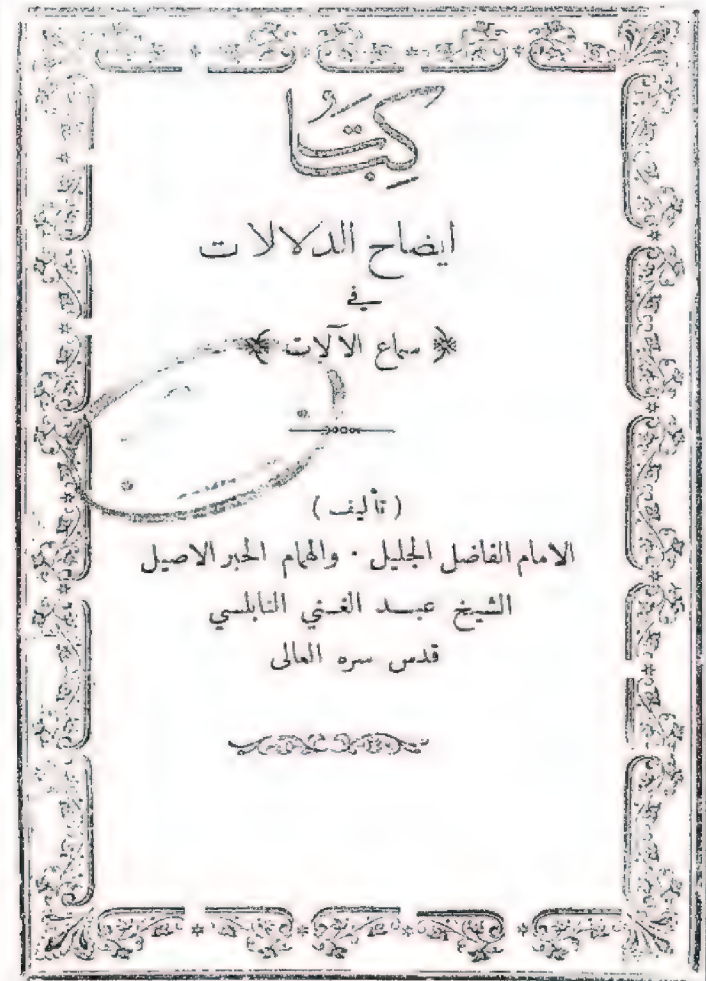 كِتَابُ
ايضاح الدلالات
في
﴿ سماع الآلات ﴾
( تأليف )
الامام الفاضل الجليل · والهمام الحبر الاصيل
الشيخ عبد الغني النابلسي
قدس سره العالى